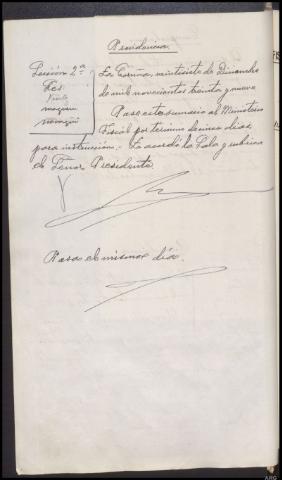 Providencia
Sección 2ª
Ses.
La Coruña, veintisiete de Diciembre
de mil novecientos treinta y nueve
Pase este sumario al Ministerio
Fiscal por termino de cinco dias
para instrucción.- Lo acordó la Sala y rubrica
el Señor Presidente
Pasa el mismo dia.
ARG